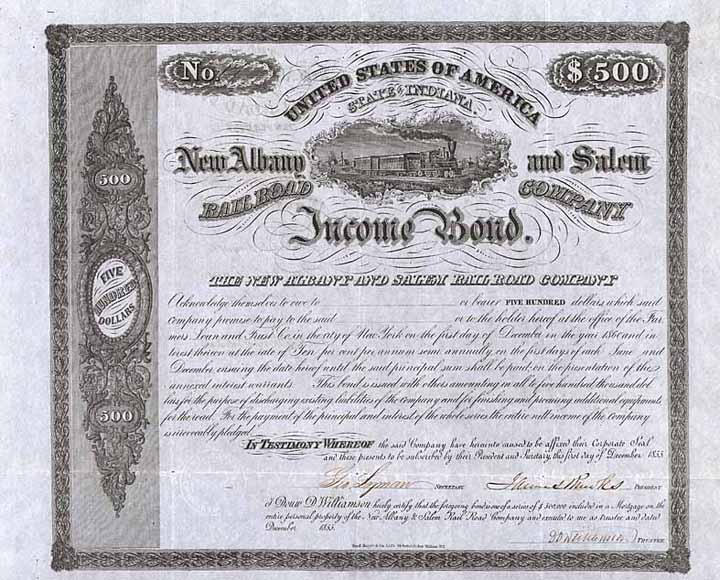 No
$500
UNITED STATES OF AMERICA
STATE OF INDIANA.
New Albany and Salem
RAIL ROAD COMPANY
Income Bond.
500
FIVE HUNDRED DOLLARS
500
THE NEW ALBANY AND SALEM RAIL ROAD COMPANY
Acknowledge themselves to owe to or bearer FIVE HUNDRED dollars which said
company promise to pay to the said or to the holder hereof at the office of the Far
mers Loan and Trust Co. in the city of New York on the first day of December in the year 1860 and in
terest thereon at the rate of Ten per cent per annum semi annually, on the first days of each June and
December ensuing the date hereof until the said principal sum shall be paid, on the presentation of the
annexed interest warrants. This bond is issued with others amounting in all to five hundred thousand dol
lars for the purpose of discharging existing liabilities of the company and for finishing and procuring additional equipments
for the road. For the payment of the principal and interest of the whole series the entire nett income of the Company
is irrevocably pledged.
IN TESTIMONY WHEREOF the said Company have hereunto caused to be affixed their Corporate Seal
and these presents to be subscribed by their President and Secretary, this first day of December 1855
Geo Lyman SECRETARY James Brooks PRESIDENT
I Douw D. Williamson hereby certify that the foregoing bond is one of a series of $500.000 included in a Mortgage on the
entire personal property of the New Albany & Salem Rail Road Company and executed to me as trustee and dated
December 1855.
D D Williamson TRUSTEE